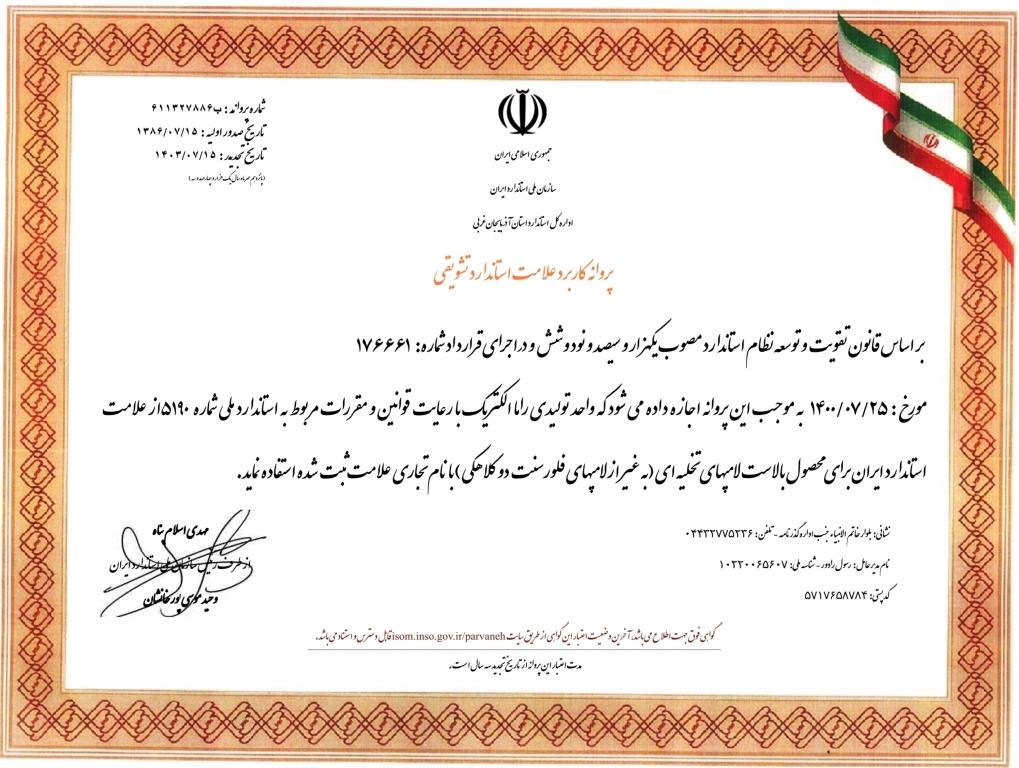 شماره پروانه: ب۶۱۱۳۲۷۸۸۶
تاریخ صدور اولیه: ۱۳۸۶/۰۷/۱۵
تاریخ تجدید: ۱۴۰۳/۰۷/۱۵
(پانزدهم مهر ماه سال یک هزار و چهارصد و سه)
جمهوری اسلامی ایران
سازمان ملی استاندارد ایران
اداره کل استاندارد استان آذربایجان غربی
پروانه کاربرد علامت استاندارد تشویقی
بر اساس قانون تقویت و توسعه نظام استاندارد مصوب یکهزار و سیصد و نود و شش و در اجرای قرارداد شماره: ۱۷۶۶۶۱
مورخ: ۱۴۰۰/۰۷/۲۵ به موجب این پروانه اجازه داده می شود که واحد تولیدی راما الکتریک با رعایت قوانین و مقررات مربوط به استاندارد ملی شماره ۵۱۹۰ از علامت
استاندارد ایران برای محصول بالاست لامپهای تخلیه ای (به غیر از لامپهای فلورسنت دو کلاهکی) با نام تجاری علامت ثبت شده استفاده نماید.
نشانی: بلوار خاتم الانبیاء جنب اداره گذرنامه - تلفن: ۰۴۴۳۲۷۷۵۲۳۶
نام مدیر عامل: رسول رادور - شناسه ملی: ۱۰۲۲۰۰۶۵۶۰۷
کد پستی: ۵۷۱۷۶۵۸۷۸۴
مهدی اسلام پناه
از طرف رئیس سازمان ملی استاندارد ایران
وحید موسی پور خانشان
گواهی فوق جهت اطلاع می باشد. آخرین وضعیت اعتبار این گواهی از طریق سایت isom.inso.gov.ir/parvaneh قابل دسترس و استناد می باشد.
مدت اعتبار این پروانه از تاریخ تجدید سه سال است.